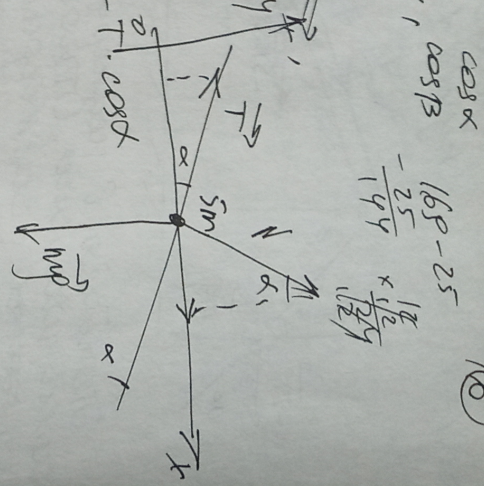 cosα
, cosβ
169 - 25
- 25
144
12
× 12
24
12
10
y
0
T · cosα
T
α
5m
N
α
mg
α
x